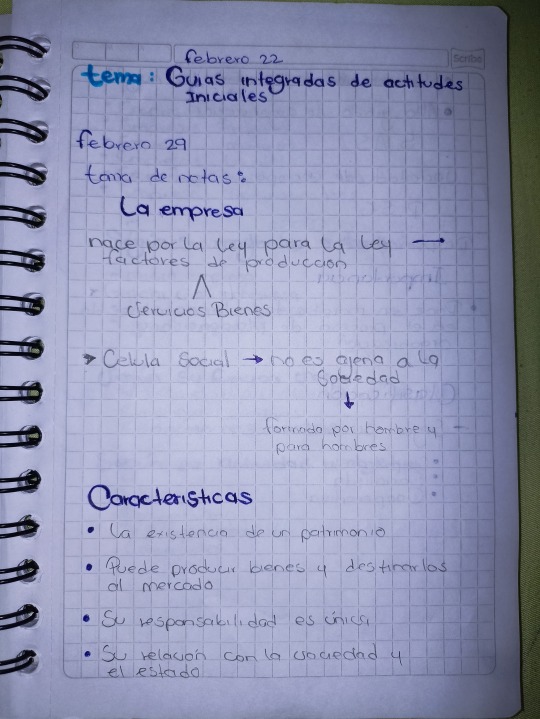 febrero 22
Scribe
tema: Guias integradas de actitudes
Iniciales
febrero 29
toma de notas:
La empresa
nace por la ley para la ley →
factores de producción
Servicios Bienes
Celula Social → no es ajena a la
Sociedad
↓
formado por hombre y
para hombres
Caracteristicas
• La existencia de un patrimonio
• Puede producir bienes y destinarlos
al mercado
• Su responsabilidad es única
• Su relación con la sociedad y
el estado